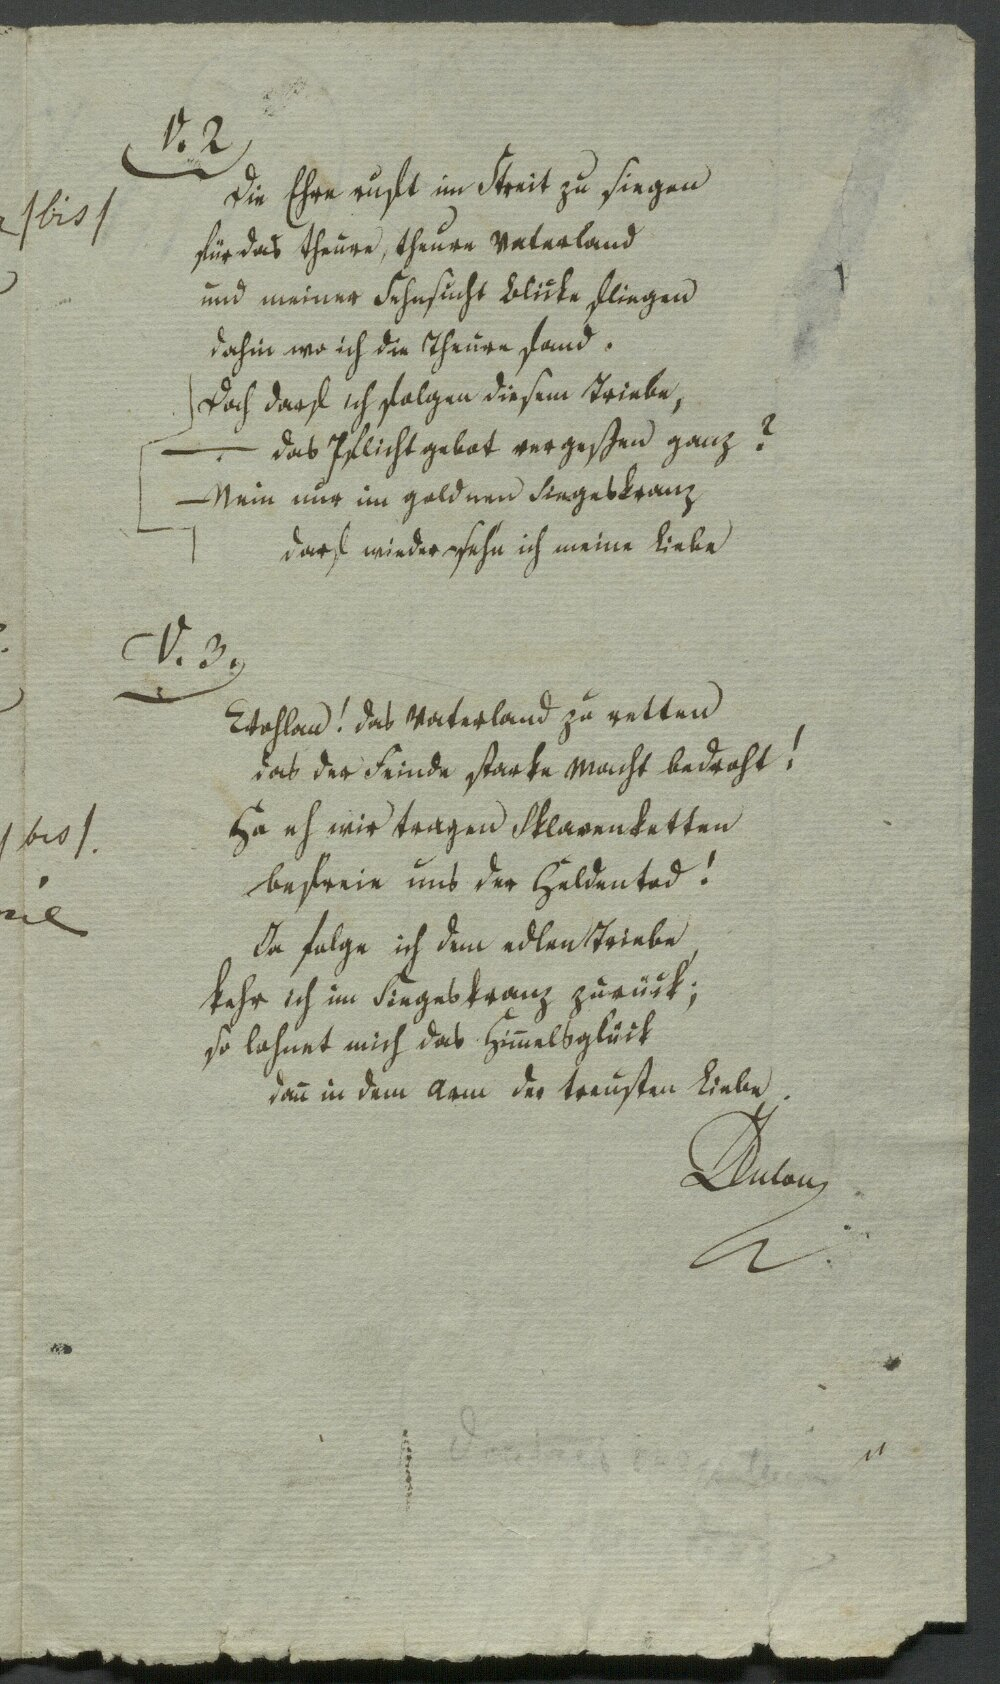 V. 2
Die Ehre ruft im Streit zu siegen
für das theure, theure Vaterland
und meiner Sehnsucht Blicke fliegen
dahin wo ich die Theure fand.
Doch darf ich folgen diesem Triebe,
das Pflichtgebot vergeßen ganz?
– Nein nur im goldnen Siegeskranz
darf wiedersehn ich meine Liebe
V. 3.
Wohlan! das Vaterland zu retten
das der Feinde starke Macht bedroht!
Ha eh wir tragen Sklavenketten
befreie uns der Heldentod!
Da folge ich dem edlen Triebe,
kehr ich im Siegeskranz zurück;
so lohnet mich das Him̅elsglück
dan̅ in dem Arm der treusten Liebe.
Anton
/bis/
/bis/.